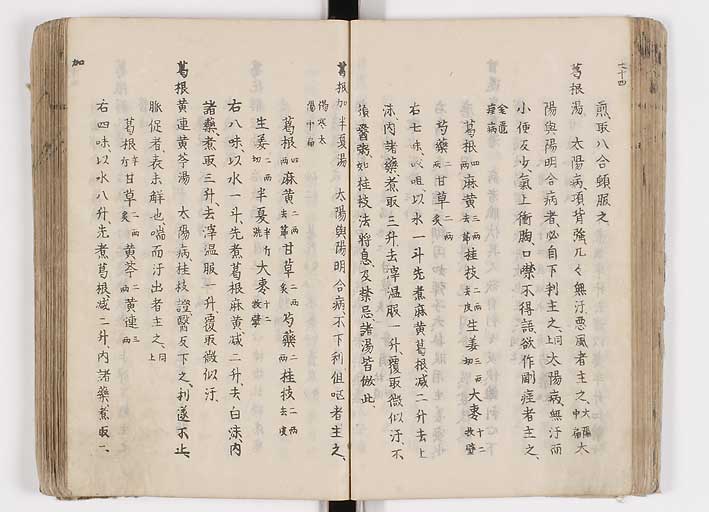 七十四
煎取八合頓服之
葛根湯 太陽病項背強几々無汗惡風者主之 太陽中扁 太
陽與陽明合病者必自下利主之 同上 太陽病無汗而
小便反少氣上衝胸口噤不得語欲作剛痓者主之
金匱 痓病
葛根 四両 麻黄 三両 去節 桂枝 二両 去皮 生姜 三両 切 大棗 十二枚擘
芍藥 二両 甘草 二両 炙
右七味㕮咀以水一斗先煮麻黄葛根減二升去上
沫内諸藥煮取三升去滓温服一升覆取微似汗不
須啜粥如桂枝法將息及禁忌諸湯皆倣此
葛根加半夏湯 太陽與陽明合病不下利但嘔者主之
傷寒太陽中扁
葛根 四両 麻黄 三両 去節 甘草 二両 炙 芍藥 二両 桂枝 二両 去皮
生姜 二両 切 半夏 半升 洗 大棗 十二枚擘
右八味以水一斗先煮葛根麻黄減二升去白沫内
諸藥煮取三升去滓温服一升覆取微似汗
葛根黄連黄芩湯 太陽病桂枝證醫反下之利遂不止
脈促者表未解也喘而汗出者主之 同上
葛根 半斤 甘草 二両 炙 黄芩 二両 黄連 三両
右四味以水八升先煮葛根減二升内諸藥煮取二
加